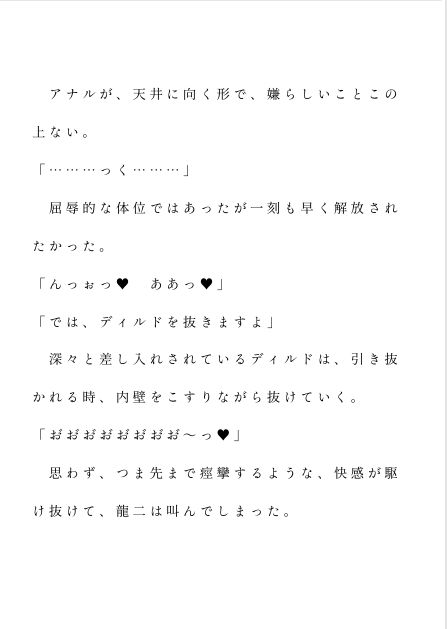 アナルが、天井に向く形で、嫌らしいことこの
上ない。
「………っく………」
屈辱的な体位ではあったが一刻も早く解放され
たかった。
「んっぉっ♥　ああっ♥」
「では、ディルドを抜きますよ」
深々と差し入れされているディルドは、引き抜
かれる時、内壁をこすりながら抜けていく。
「お゛お゛お゛お゛お゛お゛お゛お゛～っ♥」
思わず、つま先まで痙攣するような、快感が駆
け抜けて、龍二は叫んでしまった。